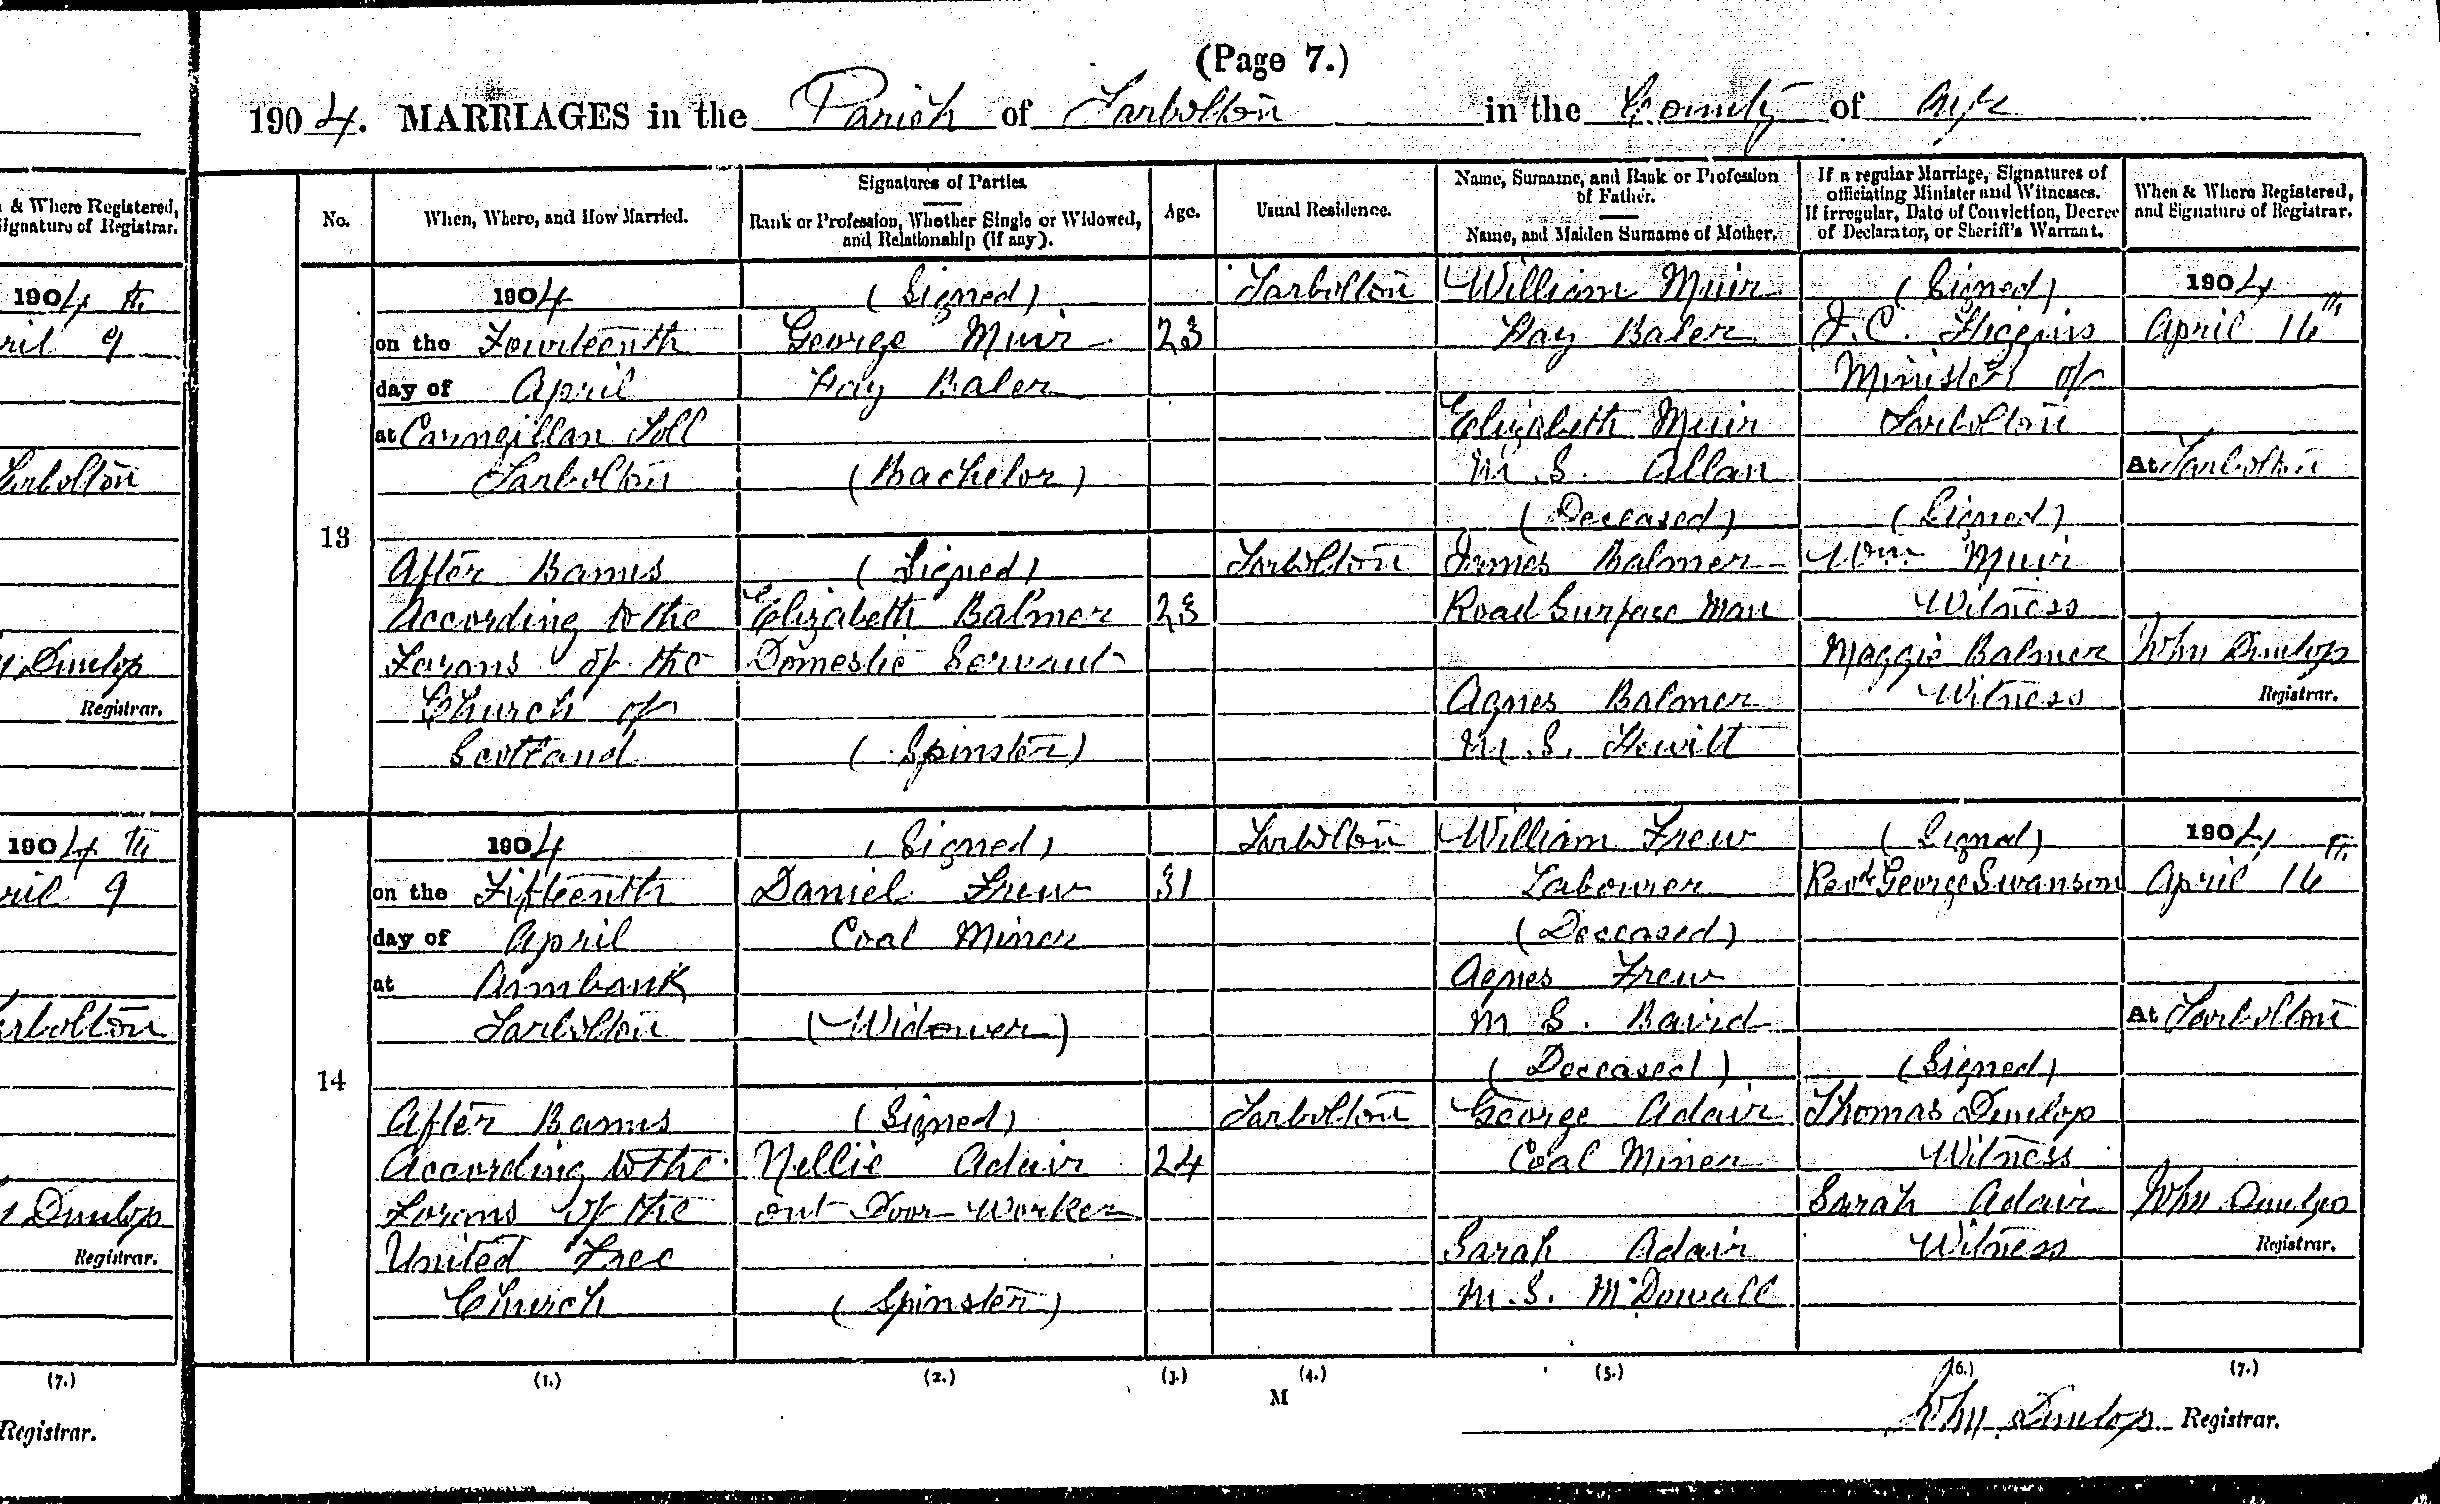 (Page 7.)
1904. MARRIAGES in the Parish of Tarbolton in the County of Ayr
& Where Registered,
Signature of Registrar.
No.
When, Where, and How Married.
Signatures of Parties.
Rank or Profession, Whether Single or Widowed,
and Relationship (if any).
Age.
Usual Residence.
Name, Surname, and Rank or Profession
of Father.
Name, and Maiden Surname of Mother.
If a regular Marriage, Signatures of
officiating Minister and Witnesses.
If irregular, Date of Conviction, Decree
of Declarator, or Sheriff's Warrant.
When & Where Registered,
and Signature of Registrar.
1904
ril 9th
Tarbolton
Dunlop
Registrar.
13
1904
on the Fourteenth
day of April
at Carngillan Toll
Tarbolton
After Banns
According to the
Forms of the
Church of
Scotland
(Signed)
George Muir
Hay Baler
(Bachelor)
(Signed)
Elizabeth Balmer
Domestic Servant
(Spinster)
23
23
Tarbolton
Tarbolton
William Muir
Hay Baler
Elizabeth Muir
M.S. Allan
(Deceased)
James Balmer
Road Surface Man
Agnes Balmer
M.S. Hewitt
(Signed)
J. C. Higgins
Minister of
Tarbolton
(Signed)
Wm Muir
Witness
Maggie Balmer
Witness
1904
April 16th
At Tarbolton
John Dunlop
Registrar.
1904
ril 9th
arbolton
Dunlop
Registrar.
14
1904
on the Fifteenth
day of April
at Annbank
Tarbolton
After Banns
According to the
Forms of the
United Free
Church
(Signed)
Daniel Frew
Coal Miner
(Widower)
(Signed)
Nellie Adair
Out Door Worker
(Spinster)
31
24
Tarbolton
Tarbolton
William Frew
Labourer
(Deceased)
Agnes Frew
M S. Baird
(Deceased)
George Adair
Coal Miner
Sarah Adair
M.S. McDowall
(Signed)
Revd George Swanson
(Signed)
Thomas Dunlop
Witness
Sarah Adair
Witness
1904
April 16th
At Tarbolton
John Dunlop
Registrar.
(7.) (1.) (2.) (3.) (4.) (5.) (6.) (7.)
M
John Dunlop Registrar.
Registrar.